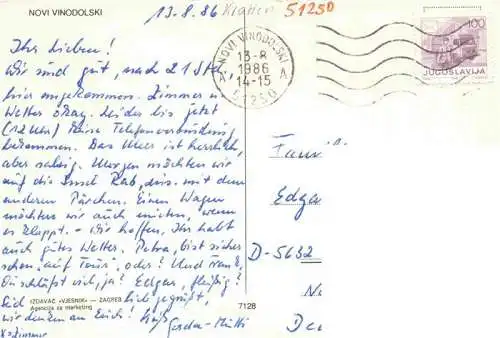 NOVI VINODOLSKI
13.8.86
51250
100
JUGOSLAVIJA
NOVI VINODOLSKI
13-8
1986
14-15
A
51250
Ihr Lieben!
Wir sind gut, nach 21 Std.,
hier angekommen. Zimmer u.
Wetter okay. Leider bis jetzt
(12 Uhr) keine Telefonverbindung
bekommen. Das Meer ist herrlich,
aber salzig. Morgen möchten wir
auf die Insel Rab, mit dem
anderen Pärchen. Einen Wagen
möchten wir auch mieten, wenn
es klappt. - Wir hoffen, Ihr habt
auch gutes Wetter. Petra, bist sicher
schon "auf Tour", oder? Und Frank,
Du schläfst viel, ja? Edgar, fleißig?
Seid lieb gegrüßt,
IZDAVAČ «VJESNIK» — ZAGREB
Agencija za marketing
7128
wir denken an Euch!
Gerda-Mutti
Fam
Edga
D-5632